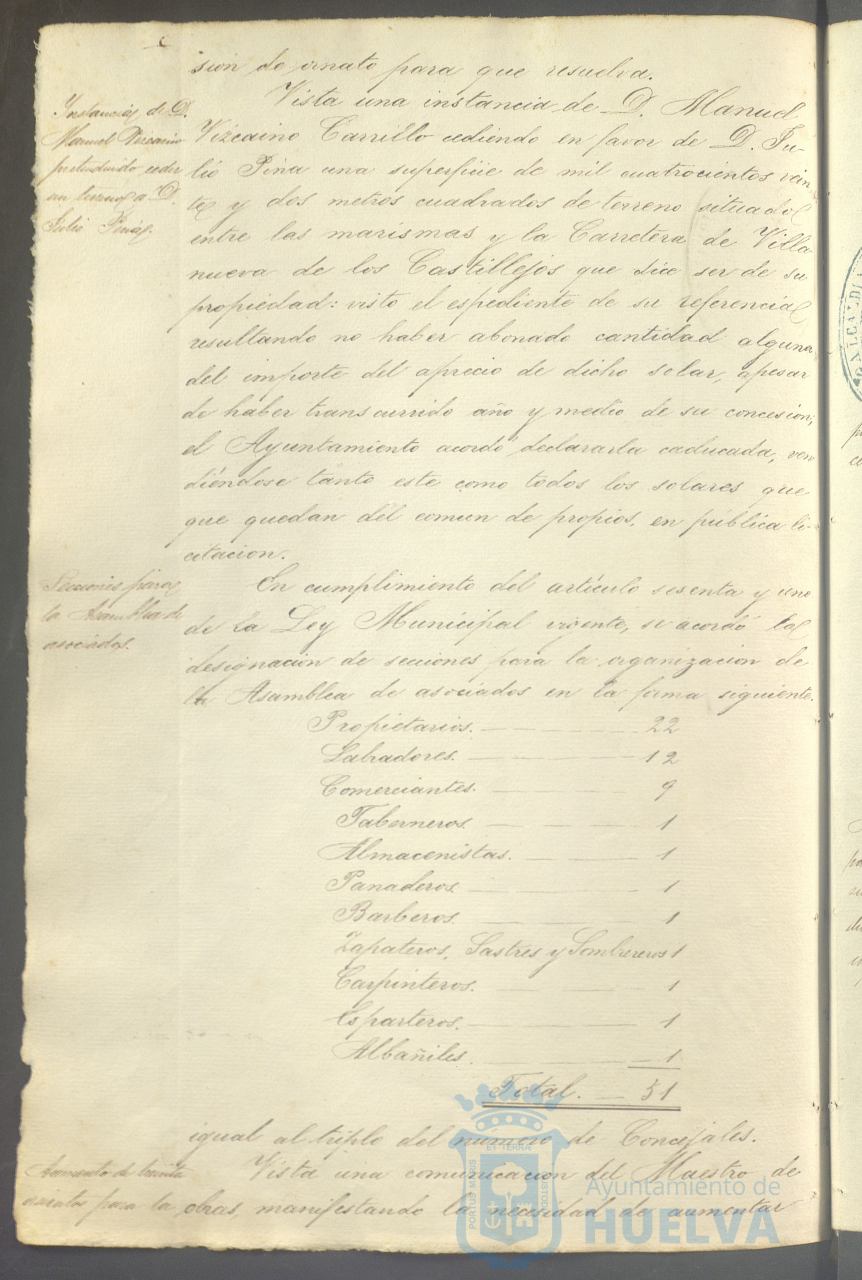 sion de ornato para que resuelva.
Instancia de D.
Manuel Vizcaino
pretendiendo ceder
un terreno a D.
Julio Piña.
Vista una instancia de D. Manuel
Vizcaino Carrillo cediendo en favor de D. Ju-
lio Piña una superficie de mil cuatrocientos vein-
te y dos metros cuadrados de terreno situado
entre las marismas y la Carretera de Villa
nueva de los Castillejos que dice ser de su
propiedad: visto el espediente de su referencia
resultando no haber abonado cantidad alguna
del importe del aprecio de dicho solar, apesar
de haber transcurrido año y medio de su concesion;
el Ayuntamiento acordó declararla caducada, ven
diéndose tanto este como todos los solares que
que quedan del comun de propios, en pública li-
citacion.
Secciones para
la Asamblea de
asociados.
En cumplimiento del artículo sesenta y uno
de la Ley Municipal vigente, se acordó la
designacion de secciones para la organizacion de
la Asamblea de asociados en la forma siguiente.
Propietarios. 22
Labradores. 12
Comerciantes. 9
Taberneros 1
Almacenistas. 1
Panaderos 1
Barberos. 1
Zapateros, Sastres y Sombrereros 1
Carpinteros. 1
Esparteros. 1
Albañiles. 1
Total. 51
igual al triplo del número de Concejales.
Aumento de
para la
Vista una comunicacion del Maestro de
obras, manifestando la necesidad de aumentar
PORTUS MARIS
ET TERRÆ
CUSTODIA
Ayuntamiento de
HUELVA
ALCALDIA